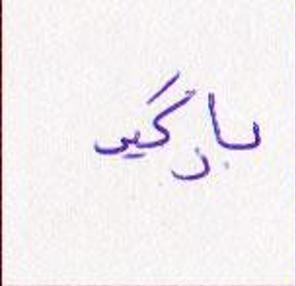 بازگیر